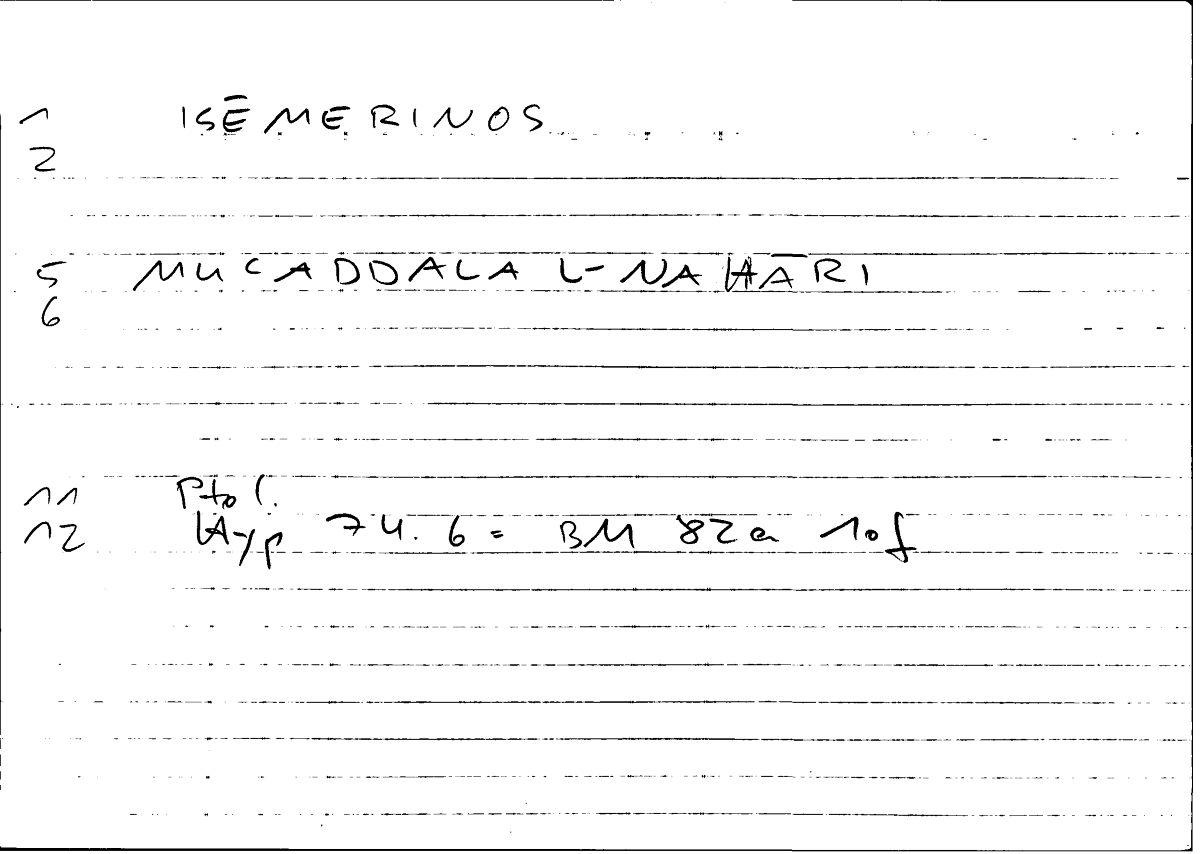 1 ISĒMERINOS
2
5 MUCADDALA L-NAHĀRI
6
11 Ptol.
12 Hyp 74.6 = BM 82a 10f